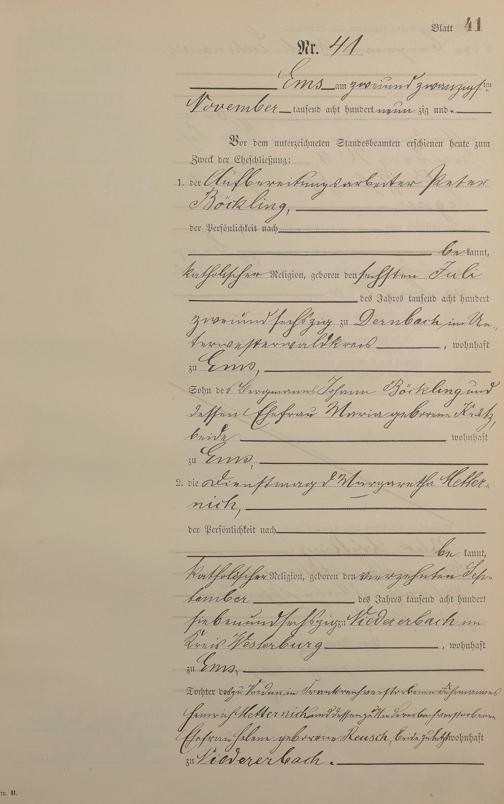 Blatt 41
Nr. 41
Ems am zweiundzwanzigsten
November tausend acht hundert neunzig und
Vor dem unterzeichneten Standesbeamten erschienen heute zum
Zweck der Eheschließung:
1. der Aufbereitungsarbeiter Peter
Böckling,
der Persönlichkeit nach
bekannt,
katholischer Religion, geboren den sechsten Juli
des Jahres tausend acht hundert
zweiundsechszig zu Dernbach im Un-
terwesterwaldkreis, wohnhaft
zu Ems,
Sohn des Bergmanns Johann Böckling und
dessen Ehefrau Maria geborene
beide wohnhaft
zu Ems,
2. die Dienstmagd Margaretha Metter-
nich,
der Persönlichkeit nach
bekannt,
katholischer Religion, geboren den vierzehnten Sep-
tember des Jahres tausend acht hundert
siebenundsechszig zu Niedererbach im
Kreis Westerburg, wohnhaft
zu Ems,
Tochter des zu in Frankreich verstorbenen
Heinrich Metternich und dessen zu Niedererbach verstorbenen
Ehefrau Helene geborene Reusch, beide zuletzt wohnhaft
zu Niedererbach.